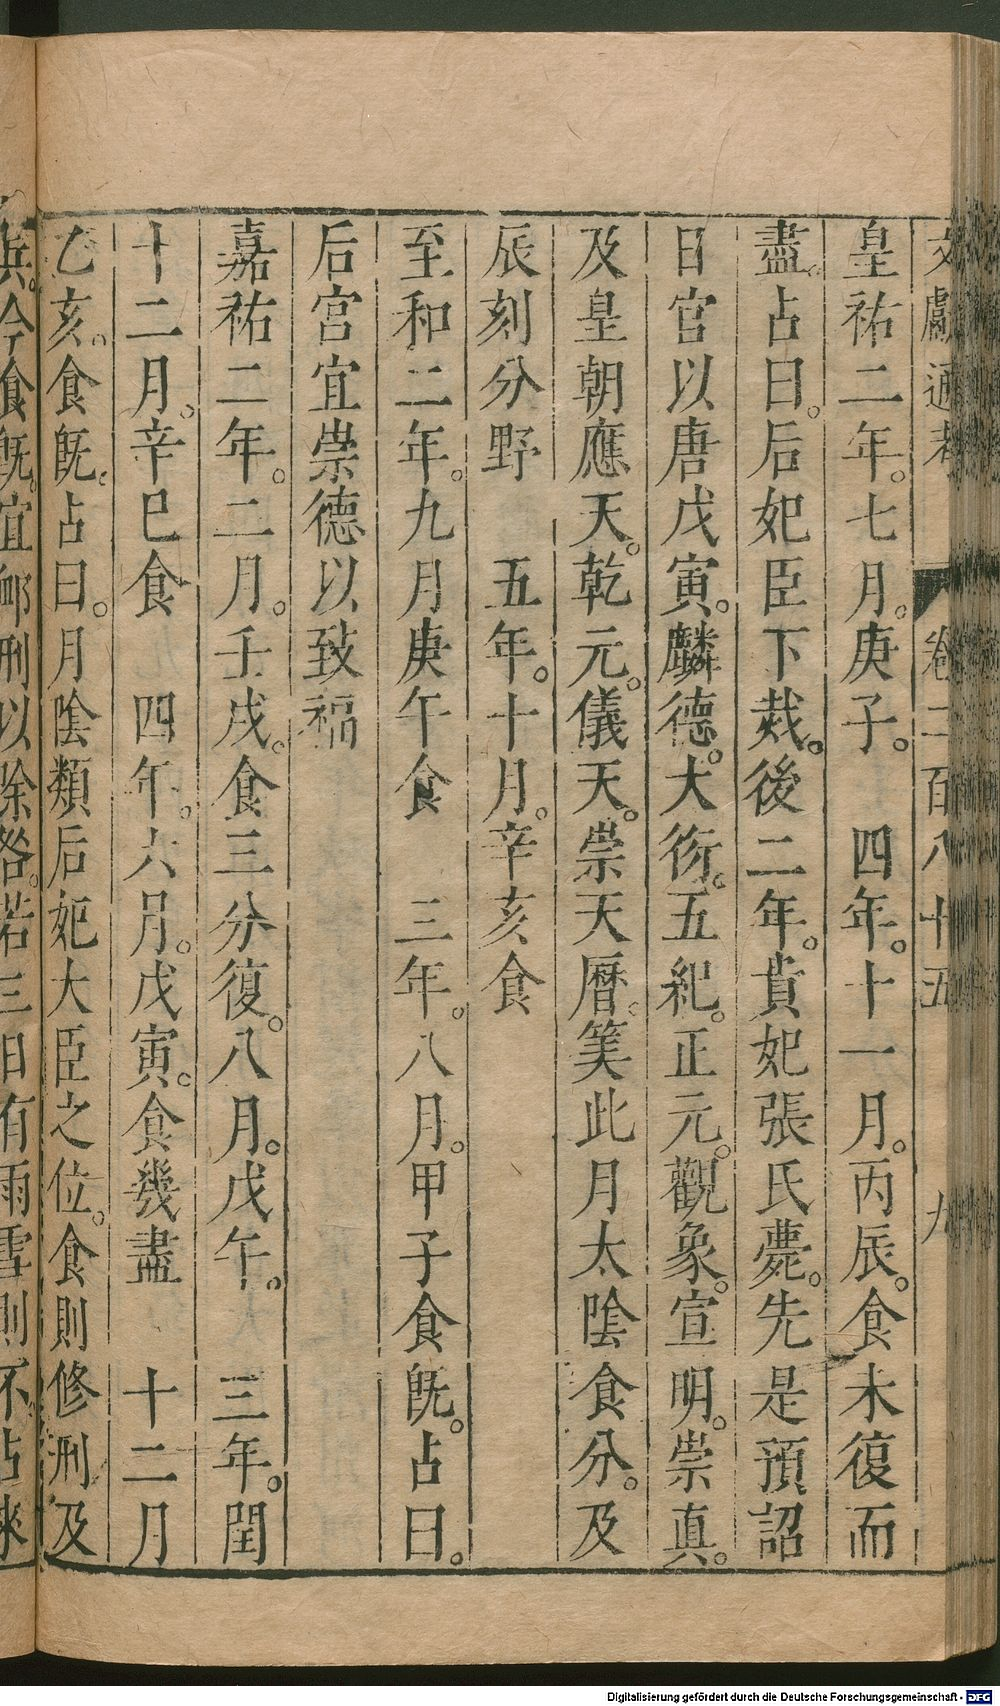 文獻通考 卷二百八十五 九
皇祐二年。七月。庚子。 四年。十一月。丙辰。食未復而
盡。占曰。后妃臣下烖。後二年。貴妃張氏薨。先是預詔
日官以唐戊寅。麟德。大衍。五紀。正元。觀象。宣明。崇真。
及皇朝應天。乾元。儀天。崇天曆。筭此月太陰食分。及
辰刻分野 五年。十月。辛亥食
至和二年。九月庚午食 三年。八月。甲子食既。占曰。
后宮宜崇德以致福
嘉祐二年。二月。壬戌。食三分復。八月。戊午。 三年。閏
十二月。辛巳食 四年。六月。戊寅。食幾盡 十二月
乙亥。食既。占曰。月陰類后妃大臣之位。食則修刑及
兵。今食既。宜䘏刑以除咎。若三日有雨雪則不占來
Digitalisierung gefördert durch die Deutsche Forschungsgemeinschaft - DFG